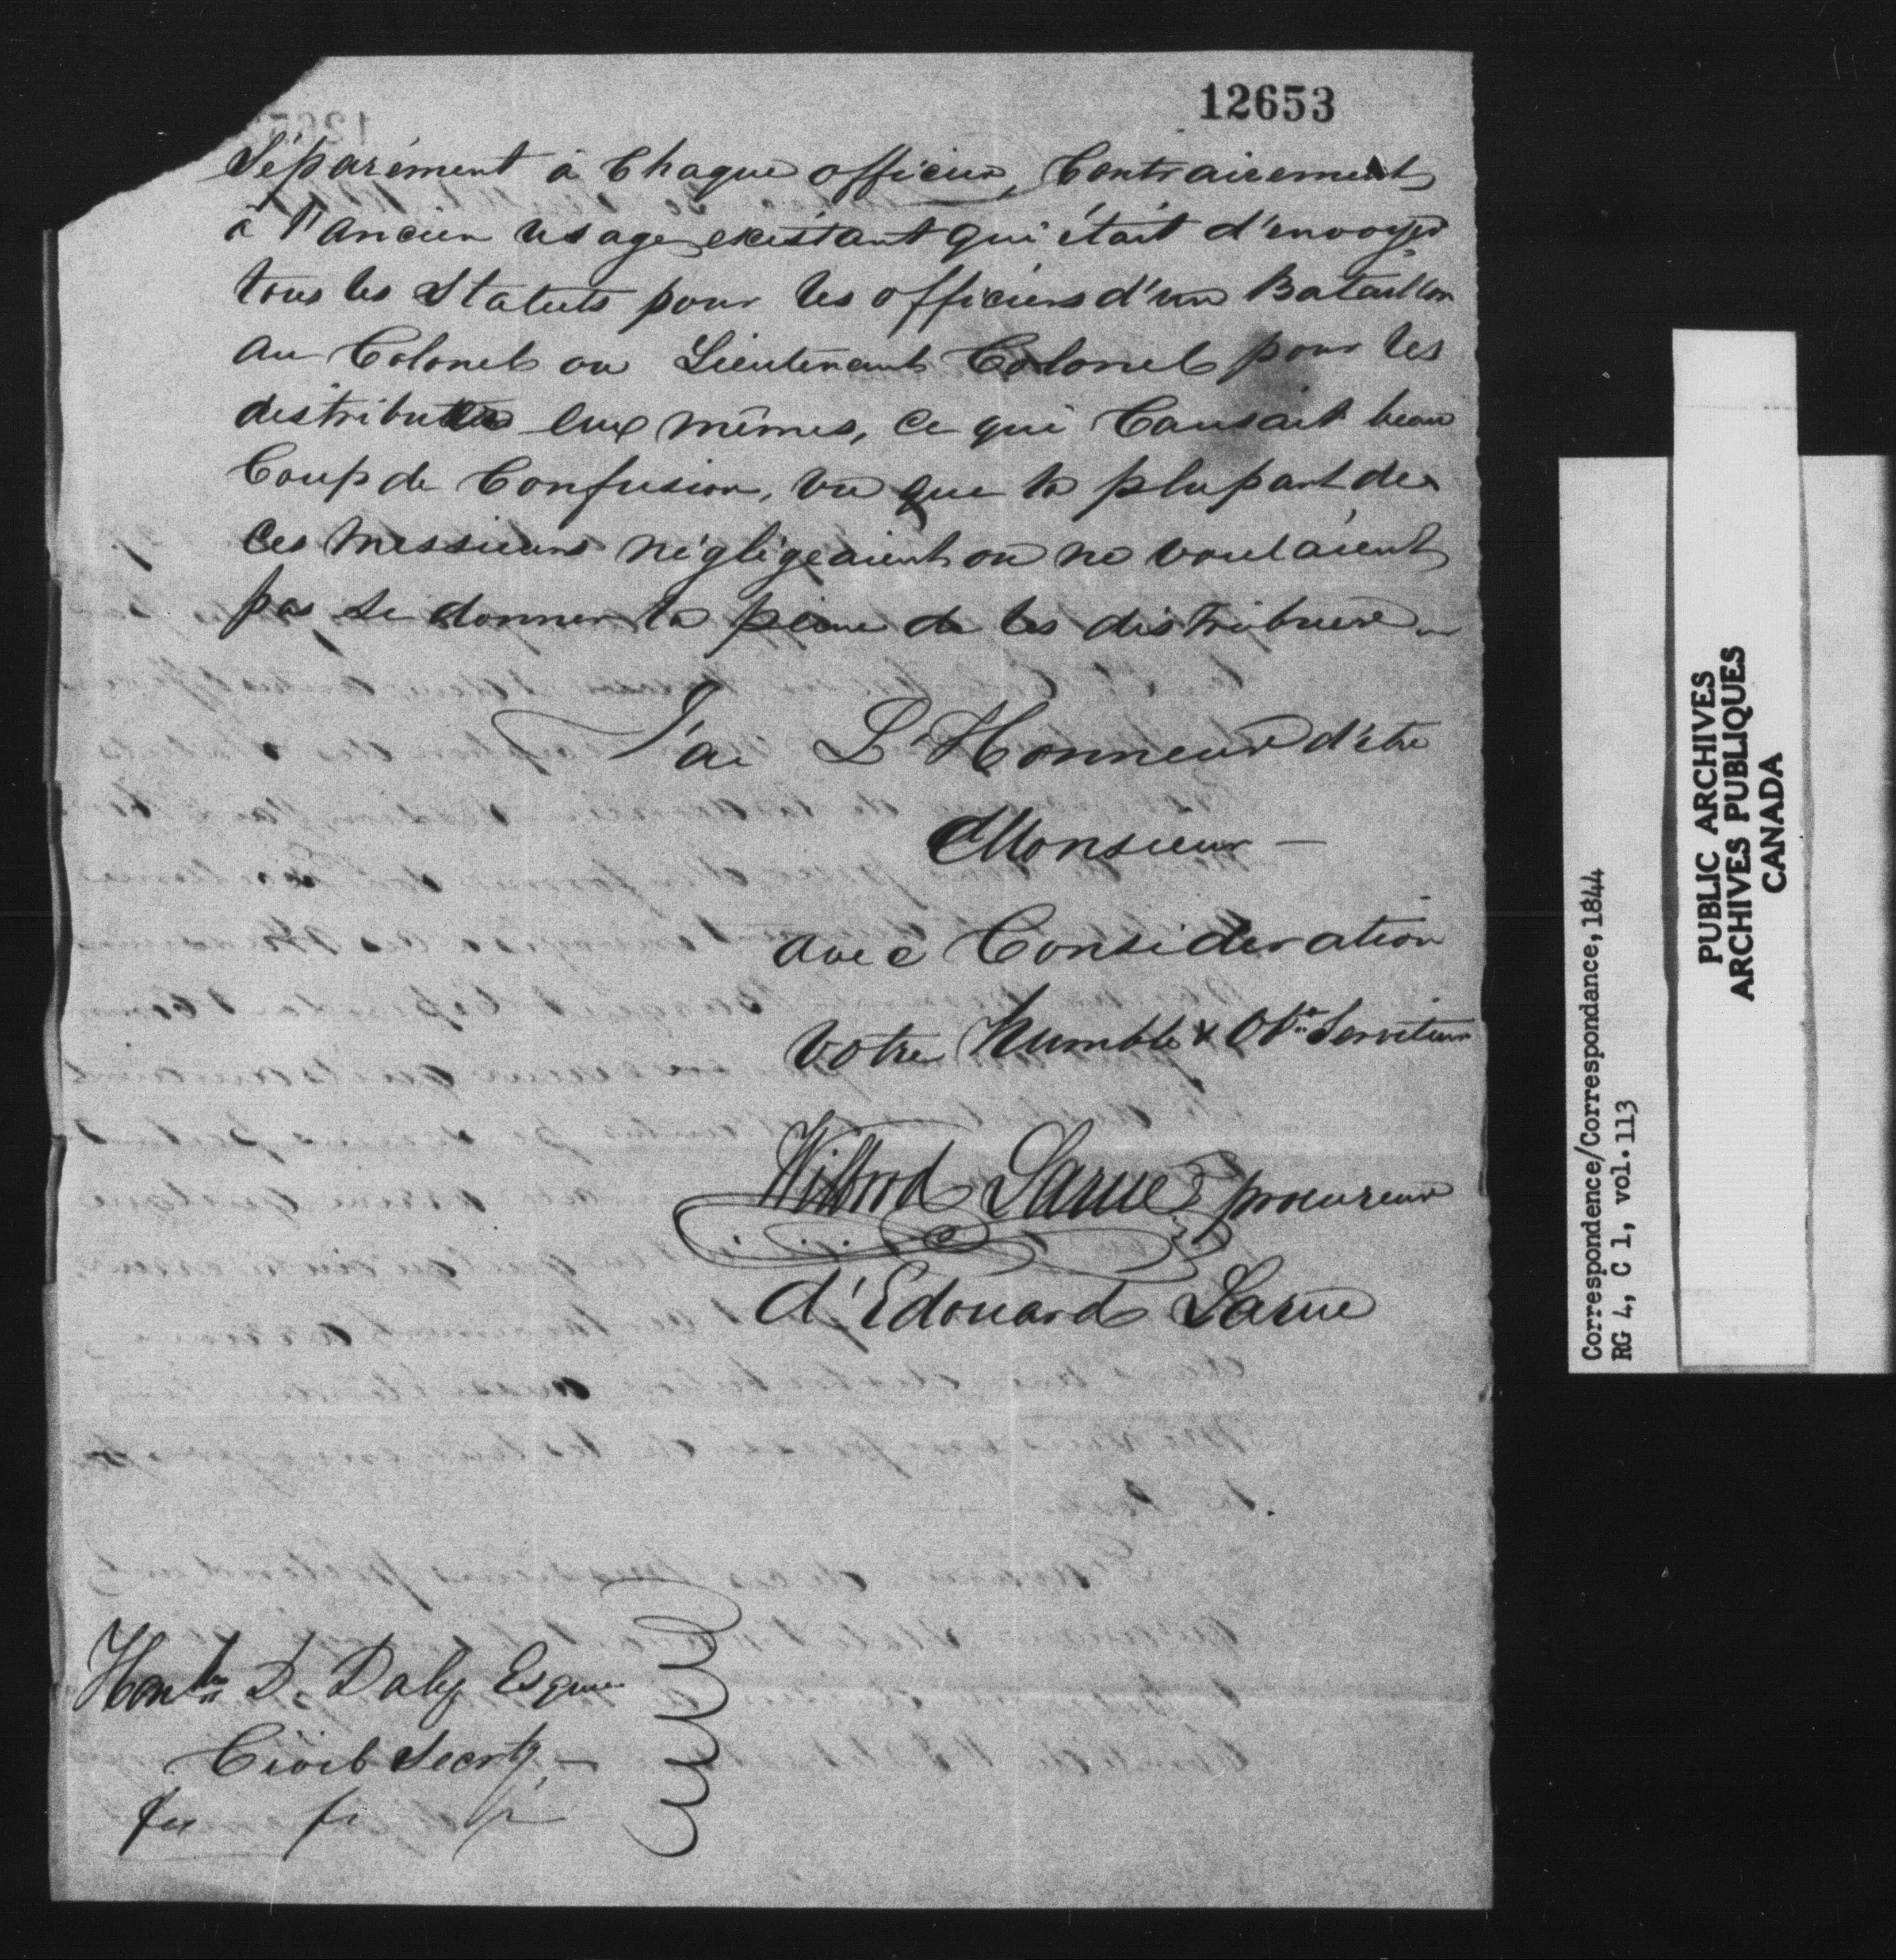 12653
Séparément à Chaque officier, Contrairement
à l'ancien usage existant qui était d'envoyer
tous les Statuts pour les officiers d'un Bataillon
au Colonel ou Lieutenant Colonel pour les
distribuer eux mêmes, ce qui Causait beau
Coup de Confusion, vu que la plupart de
ces messieurs négligeaient ou ne voulaient
pas se donner la peine de les distribuer
J'ai L'Honneur d'être
Monsieur —
avec Consideration
Votre humble & Obt Serviteur
Wilbrod Larue procureur
d'Edouard Larue
Honble D. Daly Esquire
Civil Secrty —
PUBLIC ARCHIVES
ARCHIVES PUBLIQUES
CANADA
Correspondence/Correspondance, 1844
RG 4, C 1, vol. 113